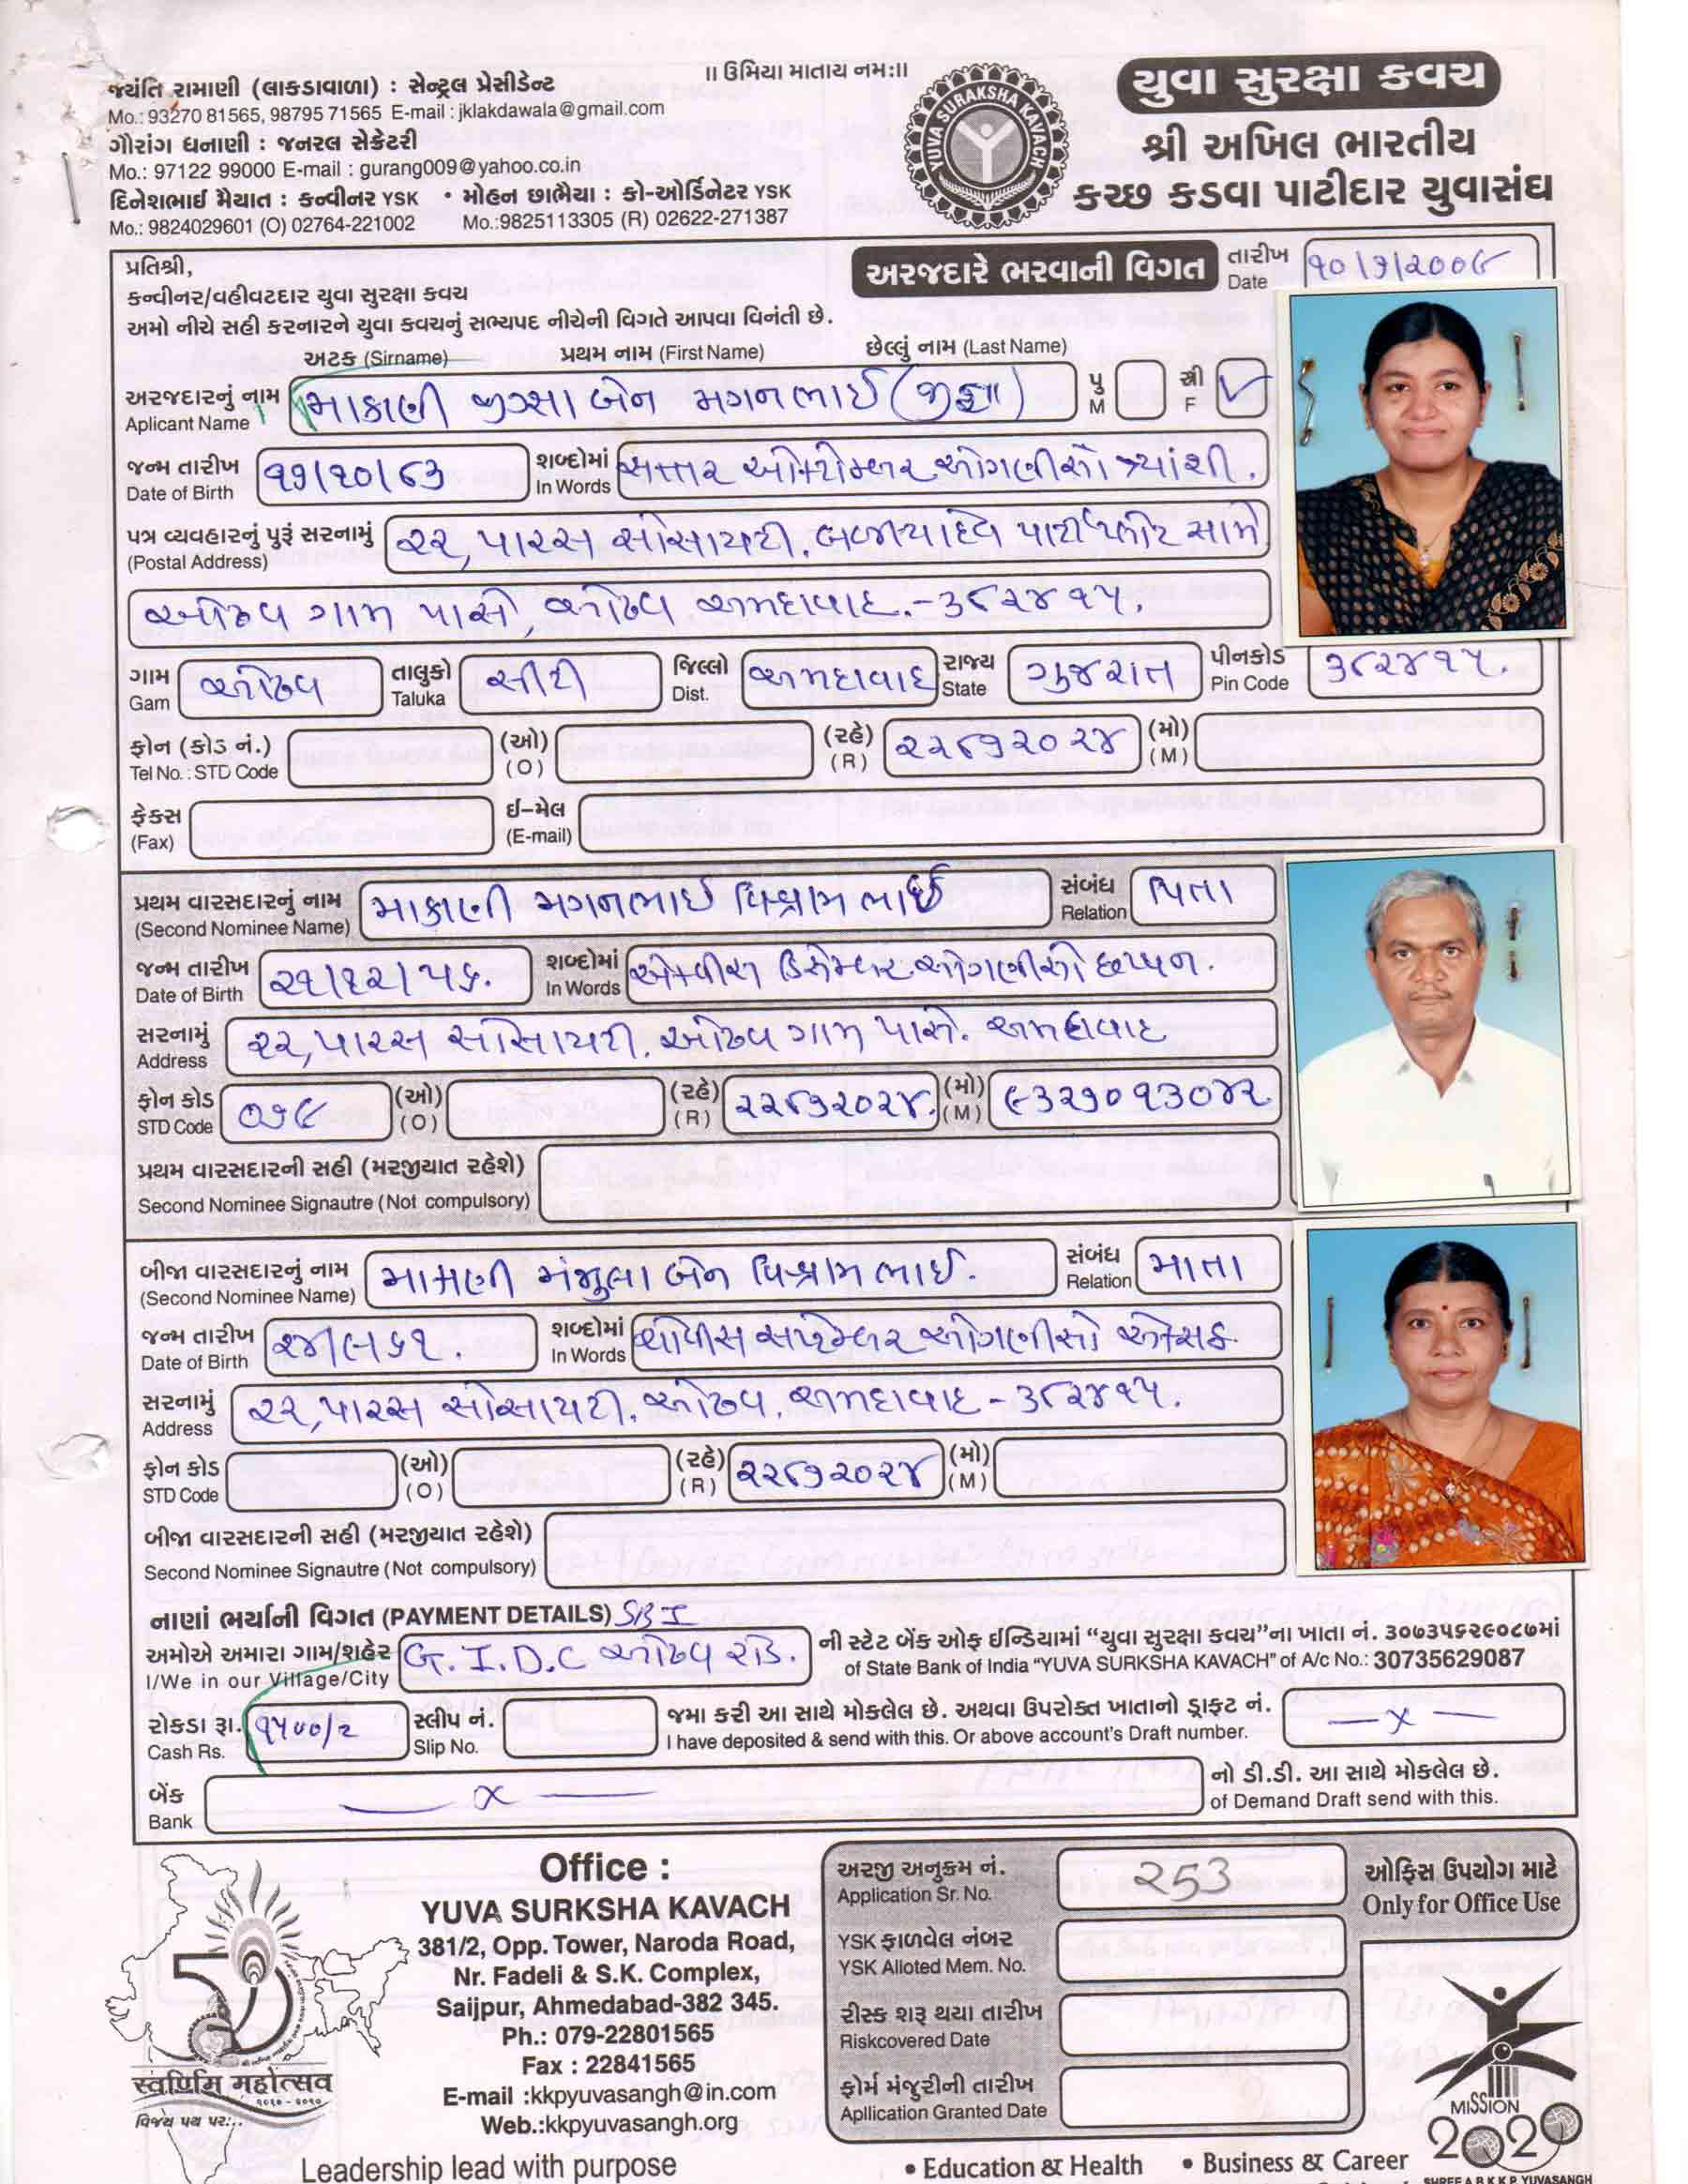 ॥ ઉમિયા માતાય નમઃ॥
જ્યંતિ રામાણી (લાકડાવાળા) : સેન્ટ્રલ પ્રેસીડેન્ટ
Mo.: 93270 81565, 98795 71565 E-mail : jklakdawala@gmail.com
ગૌરાંગ ધનાણી : જનરલ સેક્રેટરી
Mo.: 97122 99000 E-mail : gurang009@yahoo.co.in
દિનેશભાઈ મૈયાત : કન્વીનર YSK • મોહન છાભૈયા : કો-ઓર્ડિનેટર YSK
Mo.: 9824029601 (O) 02764-221002 Mo.:9825113305 (R) 02622-271387
YUVA SURAKSHA KAVACH
યુવા સુરક્ષા કવચ
શ્રી અખિલ ભારતીય
કચ્છ કડવા પાટીદાર યુવાસંઘ
પ્રતિશ્રી,
અરજદારે ભરવાની વિગત તારીખ Date ૧૦/૭/૨૦૦૯
કન્વીનર/વહીવટદાર યુવા સુરક્ષા કવચ
અમો નીચે સહી કરનારને યુવા કવચનું સભ્યપદ નીચેની વિગતે આપવા વિનંતી છે.
અટક (Sirname) પ્રથમ નામ (First Name) છેલ્લું નામ (Last Name)
અરજદારનું નામ Aplicant Name માકાણી જીગ્સા બેન મગનભાઈ (જીજ્ઞા) પુ M સ્ત્રી F ✓
જન્મ તારીખ Date of Birth ૧૭/૧૦/૮૩ શબ્દોમાં In Words સત્તર ઓક્ટોમ્બર ઓગણીસો ત્યાંશી.
પત્ર વ્યવહારનું પુરૂં સરનામું (Postal Address) ૨૨, પારસ સોસાયટી, બળીયાદેવ પાર્ટી પ્લોટ સામે
ઓઢવ ગામ પાસે, ઓઢવ અમદાવાદ.-૩૮૨૪૧૫.
ગામ Gam ઓઢવ તાલુકો Taluka સીટી જિલ્લો Dist. અમદાવાદ રાજ્ય State ગુજરાત પીનકોડ Pin Code ૩૮૨૪૧૫.
ફોન (કોડ નં.) Tel No. : STD Code (ઓ) (O) (રહે) (R) ૨૨૮૭૨૦૨૪ (મો) (M)
ફેક્સ (Fax) ઈ-મેલ (E-mail)
પ્રથમ વારસદારનું નામ (Second Nominee Name) માકાણી મગનભાઈ વિશ્રામભાઈ સંબંધ Relation પિતા
જન્મ તારીખ Date of Birth ૨૧/૧૨/૫૬. શબ્દોમાં In Words એકવીસ ડિસેમ્બર ઓગણીસો છપ્પન.
સરનામું Address ૨૨, પારસ સોસાયટી, ઓઢવ ગામ પાસે. અમદાવાદ
ફોન કોડ STD Code ૦૭૯ (ઓ) (O) (રહે) (R) ૨૨૮૭૨૦૨૪. (મો) (M) ૯૩૨૭૦૧૩૦૪૨
પ્રથમ વારસદારની સહી (મરજીયાત રહેશે)
Second Nominee Signautre (Not compulsory)
બીજા વારસદારનું નામ (Second Nominee Name) માકાણી મંજુલા બેન વિશ્રામભાઈ. સંબંધ Relation માતા
જન્મ તારીખ Date of Birth ૨૪/૯/૬૧. શબ્દોમાં In Words ચોવીસ સપ્ટેમ્બર ઓગણીસો એકસઠ
સરનામું Address ૨૨, પારસ સોસાયટી, ઓઢવ, અમદાવાદ - ૩૮૨૪૧૫.
ફોન કોડ STD Code (ઓ) (O) (રહે) (R) ૨૨૮૭૨૦૨૪ (મો) (M)
બીજા વારસદારની સહી (મરજીયાત રહેશે)
Second Nominee Signautre (Not compulsory)
નાણાં ભર્યાની વિગત (PAYMENT DETAILS) SBI
અમોએ અમારા ગામ/શહેર G.I.D.C ઓઢવ રોડ. ની સ્ટેટ બેંક ઓફ ઈન્ડિયામાં “યુવા સુરક્ષા કવચ”ના ખાતા નં. ૩૦૭૩૫૬૨૯૦૮૭માં
I/We in our Village/City of State Bank of India “YUVA SURKSHA KAVACH” of A/c No.: 30735629087
રોકડા રૂા. Cash Rs. ૧૫૦૦/૨ સ્લીપ નં. Slip No. જમા કરી આ સાથે મોકલેલ છે. અથવા ઉપરોક્ત ખાતાનો ડ્રાફ્ટ નં. — x —
I have deposited & send with this. Or above account's Draft number.
બેંક Bank — x — નો ડી.ડી. આ સાથે મોકલેલ છે.
of Demand Draft send with this.
Office :
YUVA SURKSHA KAVACH
381/2, Opp. Tower, Naroda Road,
Nr. Fadeli & S.K. Complex,
Saijpur, Ahmedabad-382 345.
Ph.: 079-22801565
Fax : 22841565
E-mail :kkpyuvasangh@in.com
Web.:kkpyuvasangh.org
50
स्वर्णिम महोत्सव
२०१० - २०२०
વિજય પથ પર...
અરજી અનુક્રમ નં. Application Sr. No. 253
ઓફિસ ઉપયોગ માટે
Only for Office Use
YSK ફાળવેલ નંબર
YSK Alloted Mem. No.
રીસ્ક શરૂ થયા તારીખ
Riskcovered Date
ફોર્મ મંજુરીની તારીખ
Apllication Granted Date
MISSION
2020
Leadership lead with purpose
• Education & Health • Business & Career
SHREE A.B.K.K.P. YUVASANGH